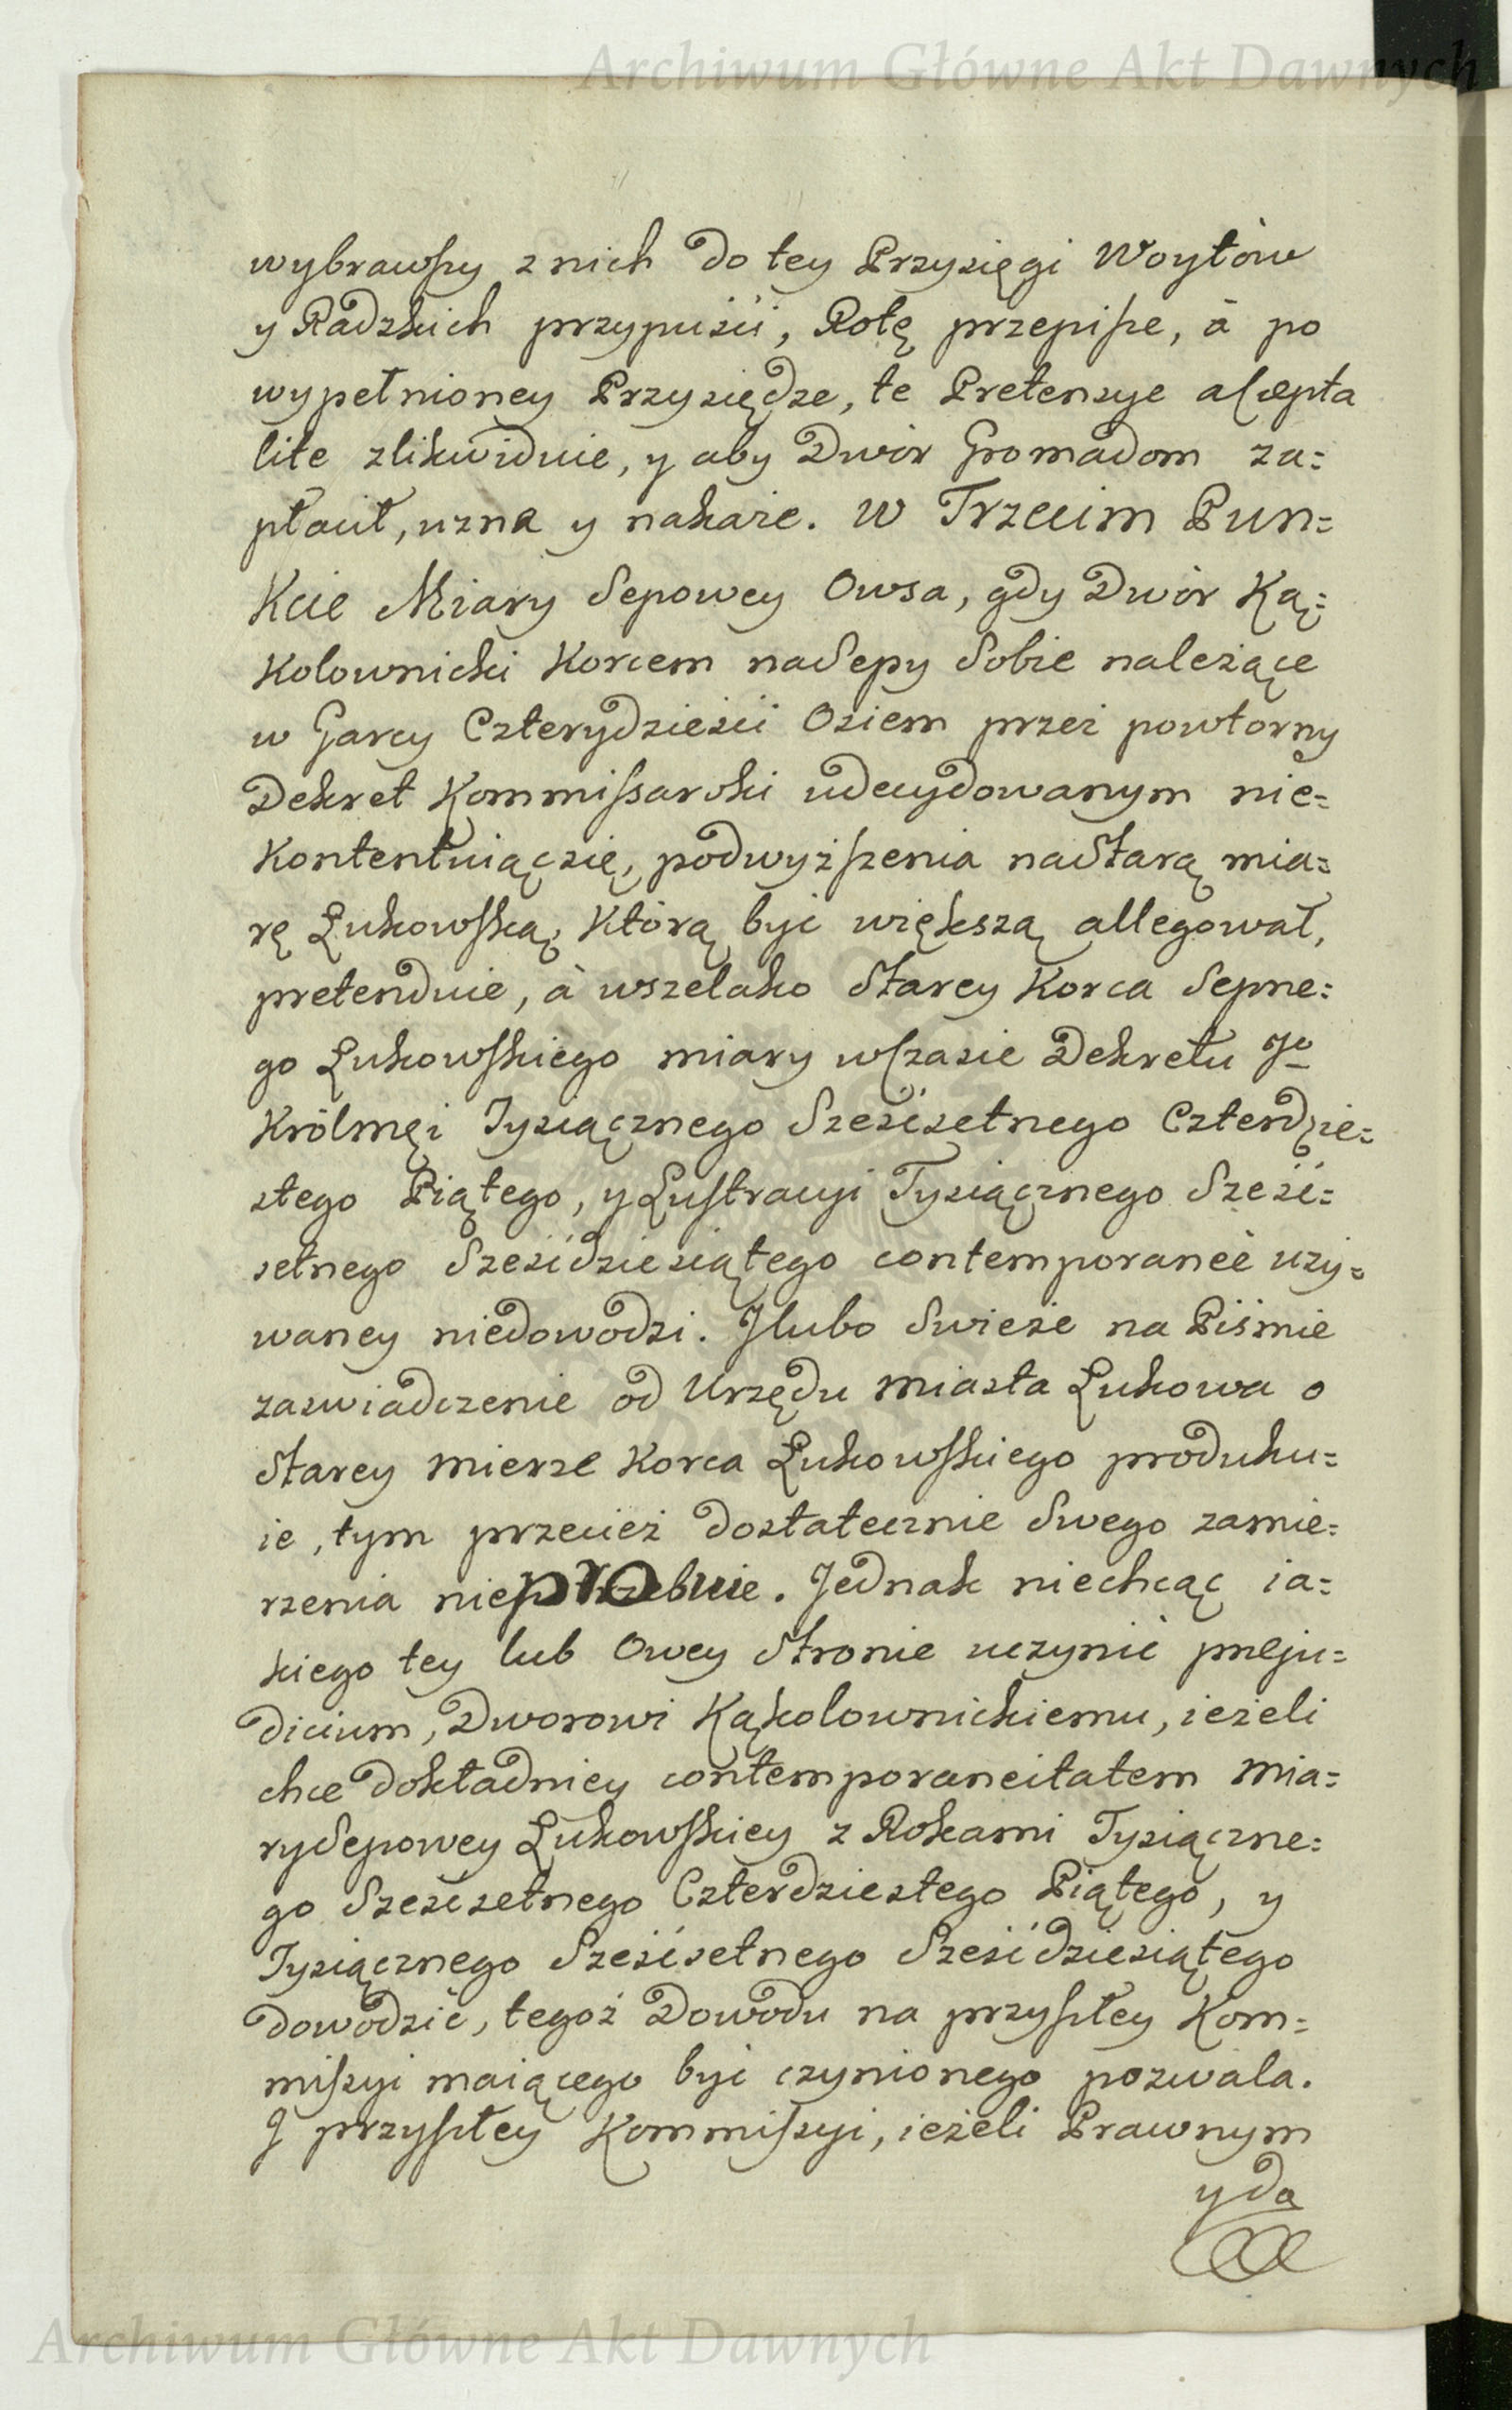 Archiwum Główne Akt Dawnych
wybrawszy z nich do tey Przysięgi Woytów
y Radzkich przypuści, Rotę przepisze, à po
wypełnioney Przysiędze, te Pretensye accepta
lite zlikwiduie, y aby Dwór Gromadom za=
płacił, uzna y nakaże. W Trzecim Pun=
kcie Miary Sepowey Owsa, gdy Dwór Ką=
kolownicki Korcem na Sepy Sobie należące
w Garcy Czterydzieści Osiem przez powtorny
Dekret Kommissarski udecydowanym nie=
kontentuiąc się, podwyższenia na Starą mia=
rę Łukowską, którą być większą allegował,
pretenduie, à wszelako Starey Korca Sepne=
go Łukowskiego miary w czasie Dekretu Jo
Królmći Tysiącznego Sześćsetnego Czterdzie=
stego Piątego, y Lustracyi Tysiącznego Sześć=
setnego Sześćdziesiątego contemporaneè uży=
waney niedowodzi. J lubo Swieże na Piśmie
zaswiadczenie od Urzędu Miasta Łukowa o
Starey Mierze Korca Łukowskiego produku=
ie, tym przecież dostatecznie Swego zamie=
rzenia nieprobuie. Jednak niechcąc ia=
kiego tey lub Owey Stronie uczynić preju=
dicium, Dworowi Kąkolownickiemu, ieżeli
chce dokładniey contemporaneitatem Mia=
ry Sepowey Łukowskiey z Rokami Tysiączne=
go Sześćsetnego Czterdziestego Piątego, y
Tysiącznego Sześćsetnego Sześćdziesiątego
dowodzić, tegoż Dowodu na przyszłey Kom=
missyi maiącego być czynionego pozwala.
J przyszłey Kommissyi, ieżeli Prawnym
y da
Archiwum Główne Akt Dawnych